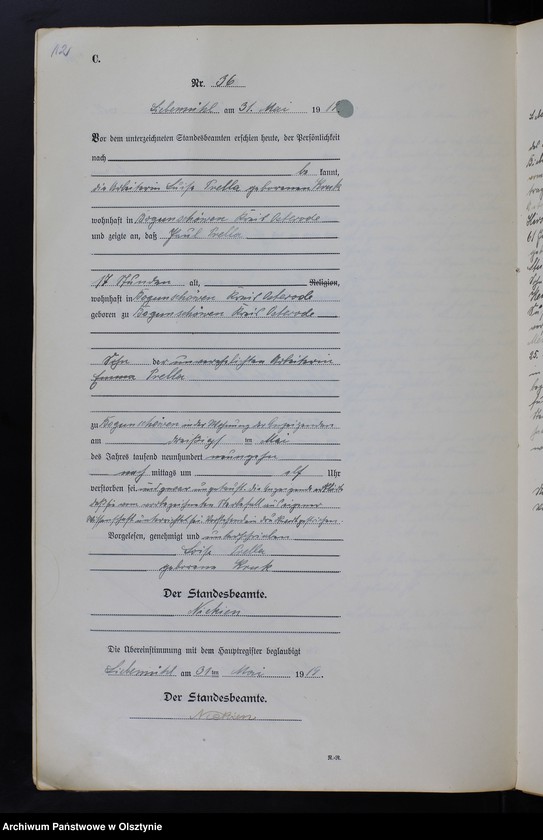 112
C.
Nr. 36
Liebemühl am 31. Mai 1919
Vor dem unterzeichneten Standesbeamten erschien heute, der Persönlichkeit
nach
be kannt,
die Arbeiterin Luise Prella geborenen Kruk
wohnhaft in Bogunschöwen Kreis Osterode
und zeigte an, daß Paul Prella
17 Stunden alt, Religion,
wohnhaft in Bogunschöwen Kreis Osterode
geboren zu Bogunschöwen Kreis Osterode
Sohn der unverehelichten Arbeiterin
Emma Prella
zu Bogunschöwen in der Wohnung der Anzeigenden
am dreißigst en Mai
des Jahres tausend neunhundert neunzehn
nach mittags um elf Uhr
verstorben sei. und zwar ungetauft. Die Anzeigende erklärte
daß sie vom Sterbefall aus eigener
Wissenschaft unterrichtet sei. Vorstehend Druckwort gestrichen.
Vorgelesen, genehmigt und unterschrieben
Luise Prella
geborene Kruk
Der Standesbeamte.
Die Übereinstimmung mit dem Hauptregister beglaubigt
Liebemühl am 31 ten Mai 1919.
Der Standesbeamte.
R.-R.
Archiwum Państwowe w Olsztynie